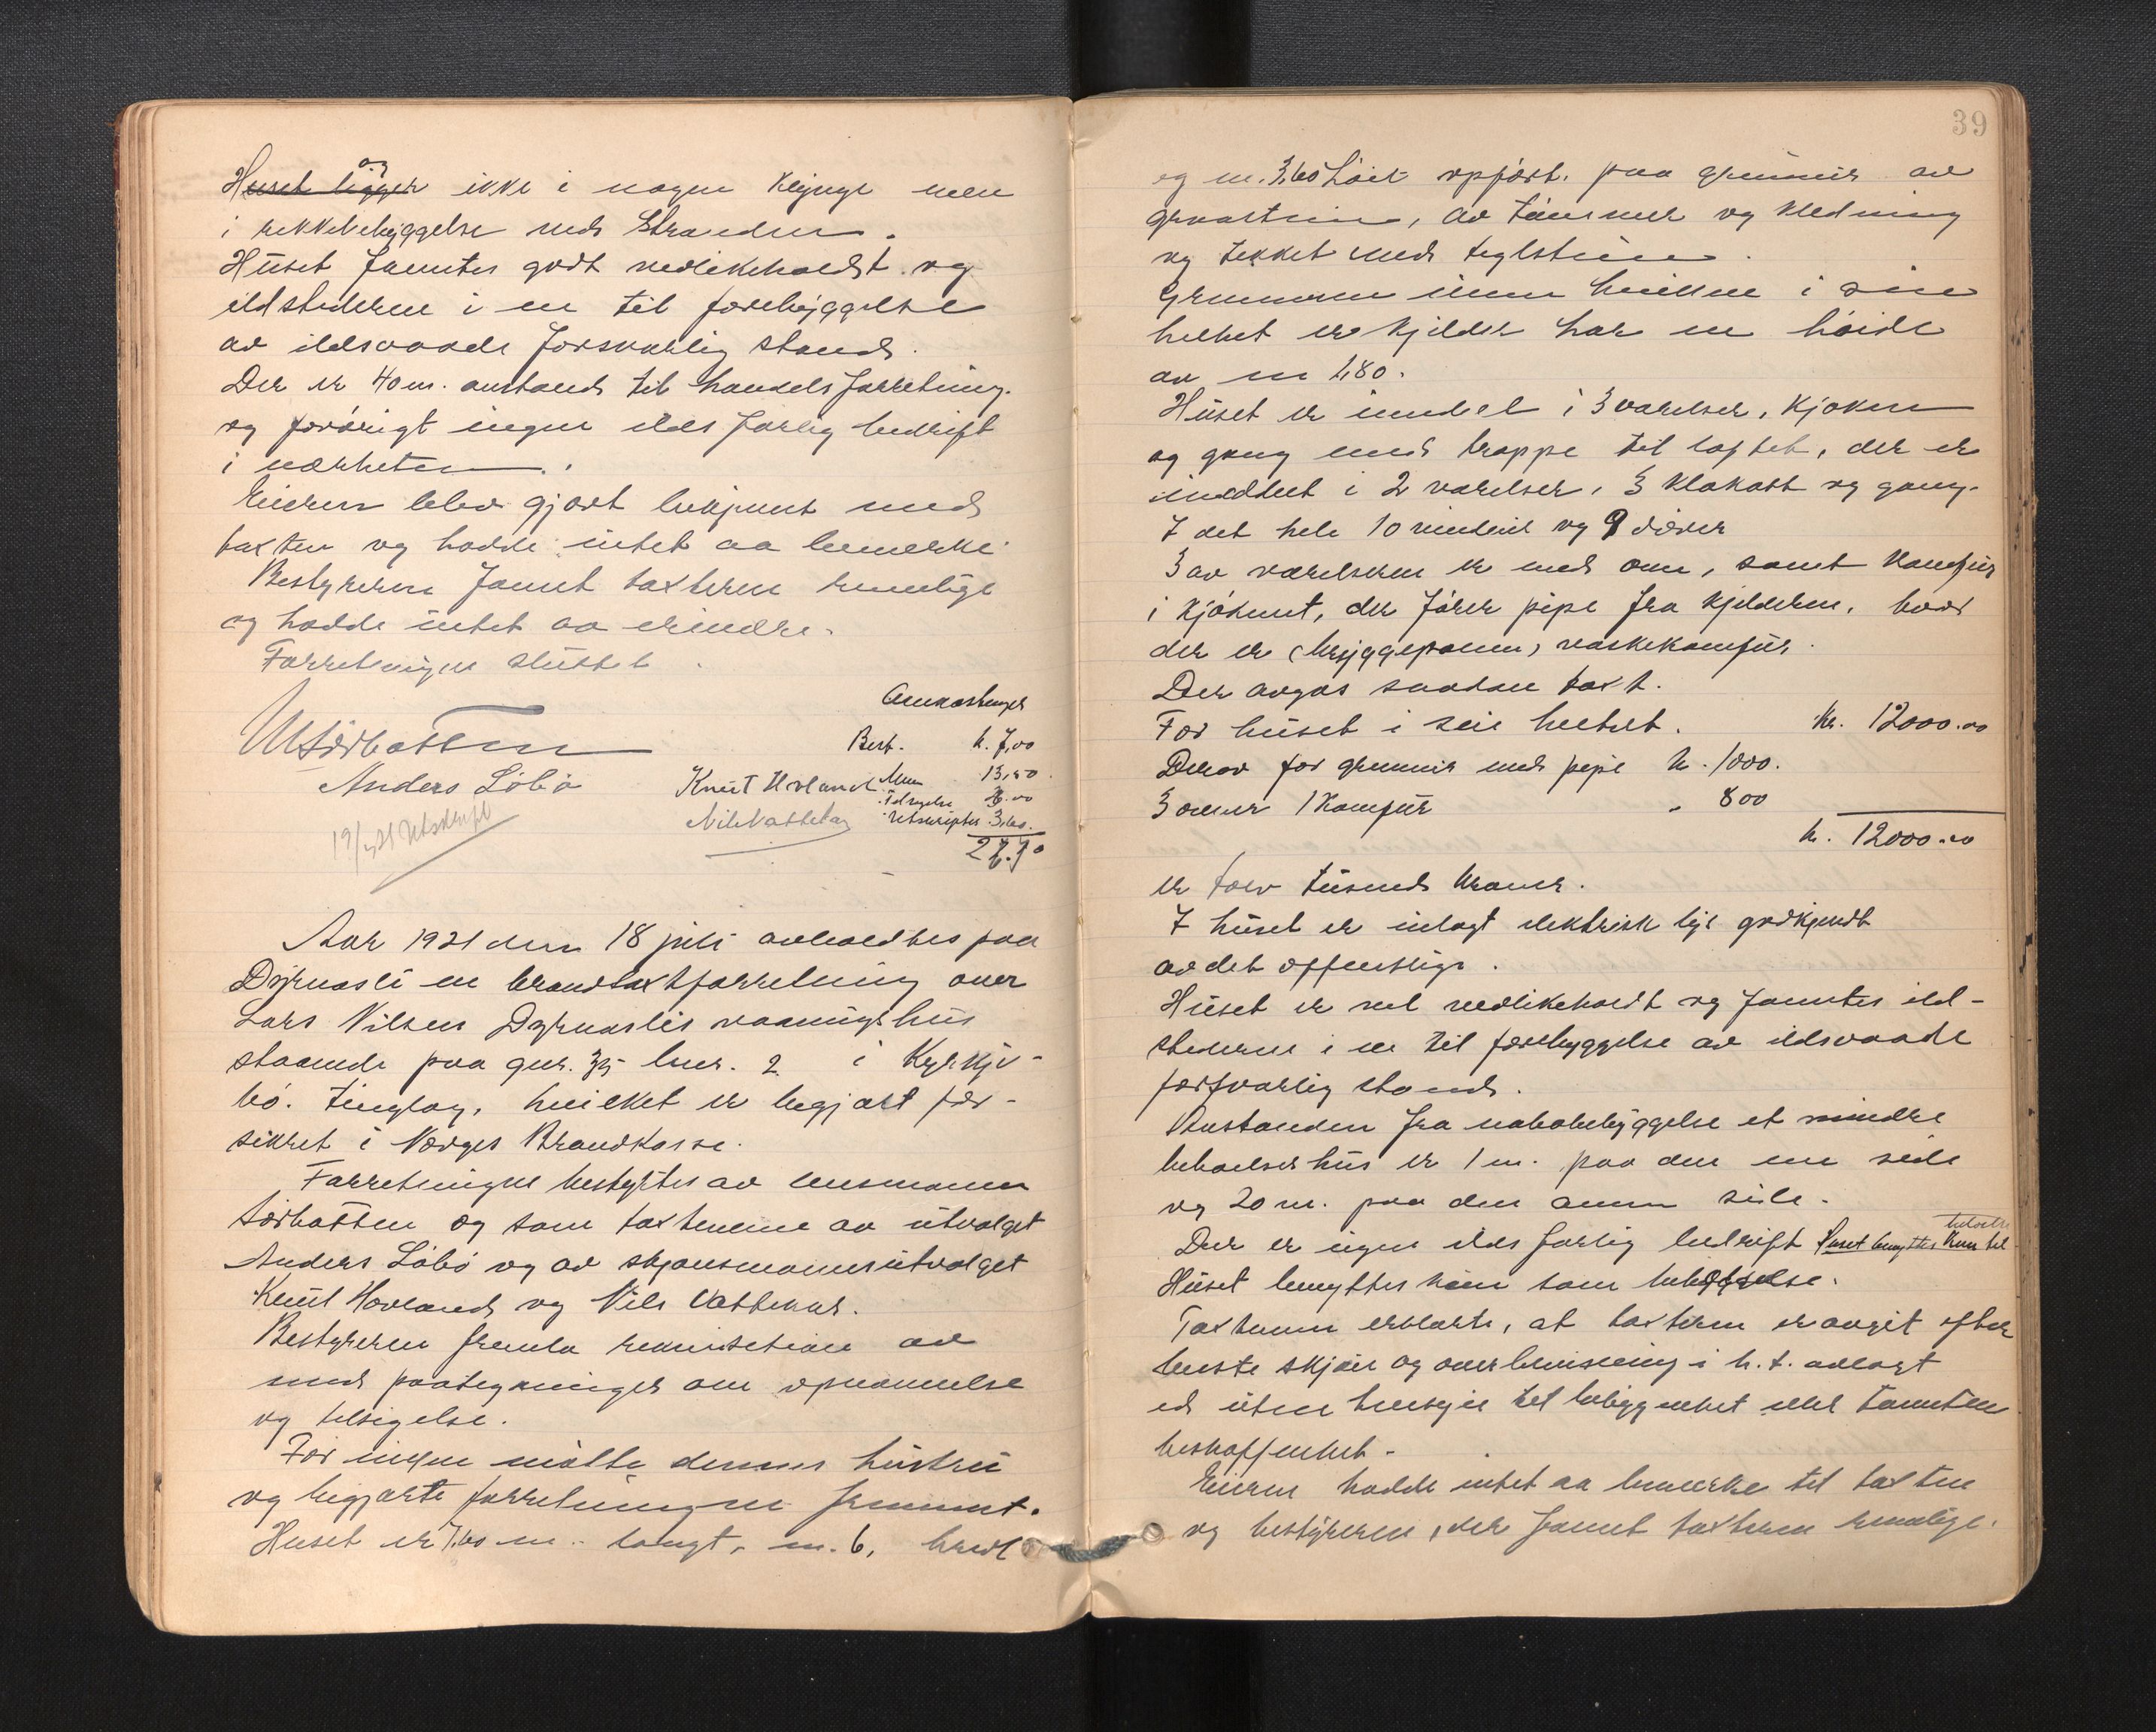 og
Huset ligger ikke i nogen Klynge men
i rekkebebyggelse med Stranden.
Huset fanntes godt vedlikeholdt og
ildstederne i en til forebyggelse
av ildsvaade forsvarlig stand.
Der er 40 m. avstand til handelsforretning.
og forövrigt ingen ildsfarlig bedrift
i nærheten.
Eieren blev gjort bekjennt med
taxten og hadde intet aa bemerke.
Bestyreren fannt taxterne rimelige
og hadde intet aa erindre.
Forretningen sluttet.
Omkostninger
Best. k. 7,00
Anders Löbö
Knut Hovland Menn 13,50
Nils Vattekar Utskrifter 3,60.
19/7 21 Utskrift
27.70
Aar 1921 den 18 juli avholdtes paa
Dyrnesli en brandtaxtforretning over
Lars Nilsen Dyrneslis vaaningshus
staaende paa gnr. 35 bnr. 2 i Kyrkje-
bö. Tinglag, hvilket er begjært for-
sikret i Norges Brandkasse.
Forretningen bestyrtes av lensmann
Sörbotten og som taxtmenn av utvalget
Anders Löbö og av skjönsmannsutvalget
Knut Hovland og Nils Vattekar.
Bestyreren fremla rekvisition av
med paategninger om opnevnelse
og tilsigelse.
For eieren mötte dennes hustru
og begjærte forretningen fremmet.
Huset er 7.60 m. langt, m. 6, bredt
39
og m. 3,60 höit opfört. paa grunmur av
graastein, av tömmer og Kledning
og tekket med teglstein.
Grunmuren innen hvilken i sin
helhet er kjelder har en höide
av m 1,80.
Huset er inndelt i 3 værelser, Kjöken
og gang med trappe til loftet, der er
inndelt i 2 værelser, 3 Klakott og gang.
I det hele 10 vinduer og 9 dörer
3 av værelserne er med ovn, samt Komfür
i kjökenet, der förer pipe fra kjelderen, hvor
der er (bryggepanne) vaskekomfür.
Der avgas saadan taxt.
For huset i sin helhet. Kr. 12000.00
Derav for grunmur med pipe kr. 1000.
3 ovner 1 Komfür " 800
kr. 12000.00
er tolv tusend kroner.
I huset er inlagt elektrisk lys godkjendt
av det offentlige.
Huset er vel vedlikeholdt og fanntes ild-
stederne i en til forebyggelse av ildsvaade
forsvarlig stand.
Avstanden fra nabobebyggelse et mindre
beboelseshus er 1 m. paa den ene side
og 20 m. paa den annen side.
Der er ingen ildsfarlig bedrift Huset benyttes Kun til beboelse
Huset benyttes kun som beboelse.
Taxtmenn erklærte, at taxterne er avgit efter
beste skjön og overbevisning i h. t. avlagt
ed uten hensyn til beliggenhet eller tomtens
beskaffenhet.
Eieren hadde intet aa bemerke til taxten
og bestyreren, der fannt taxterne rimelige.